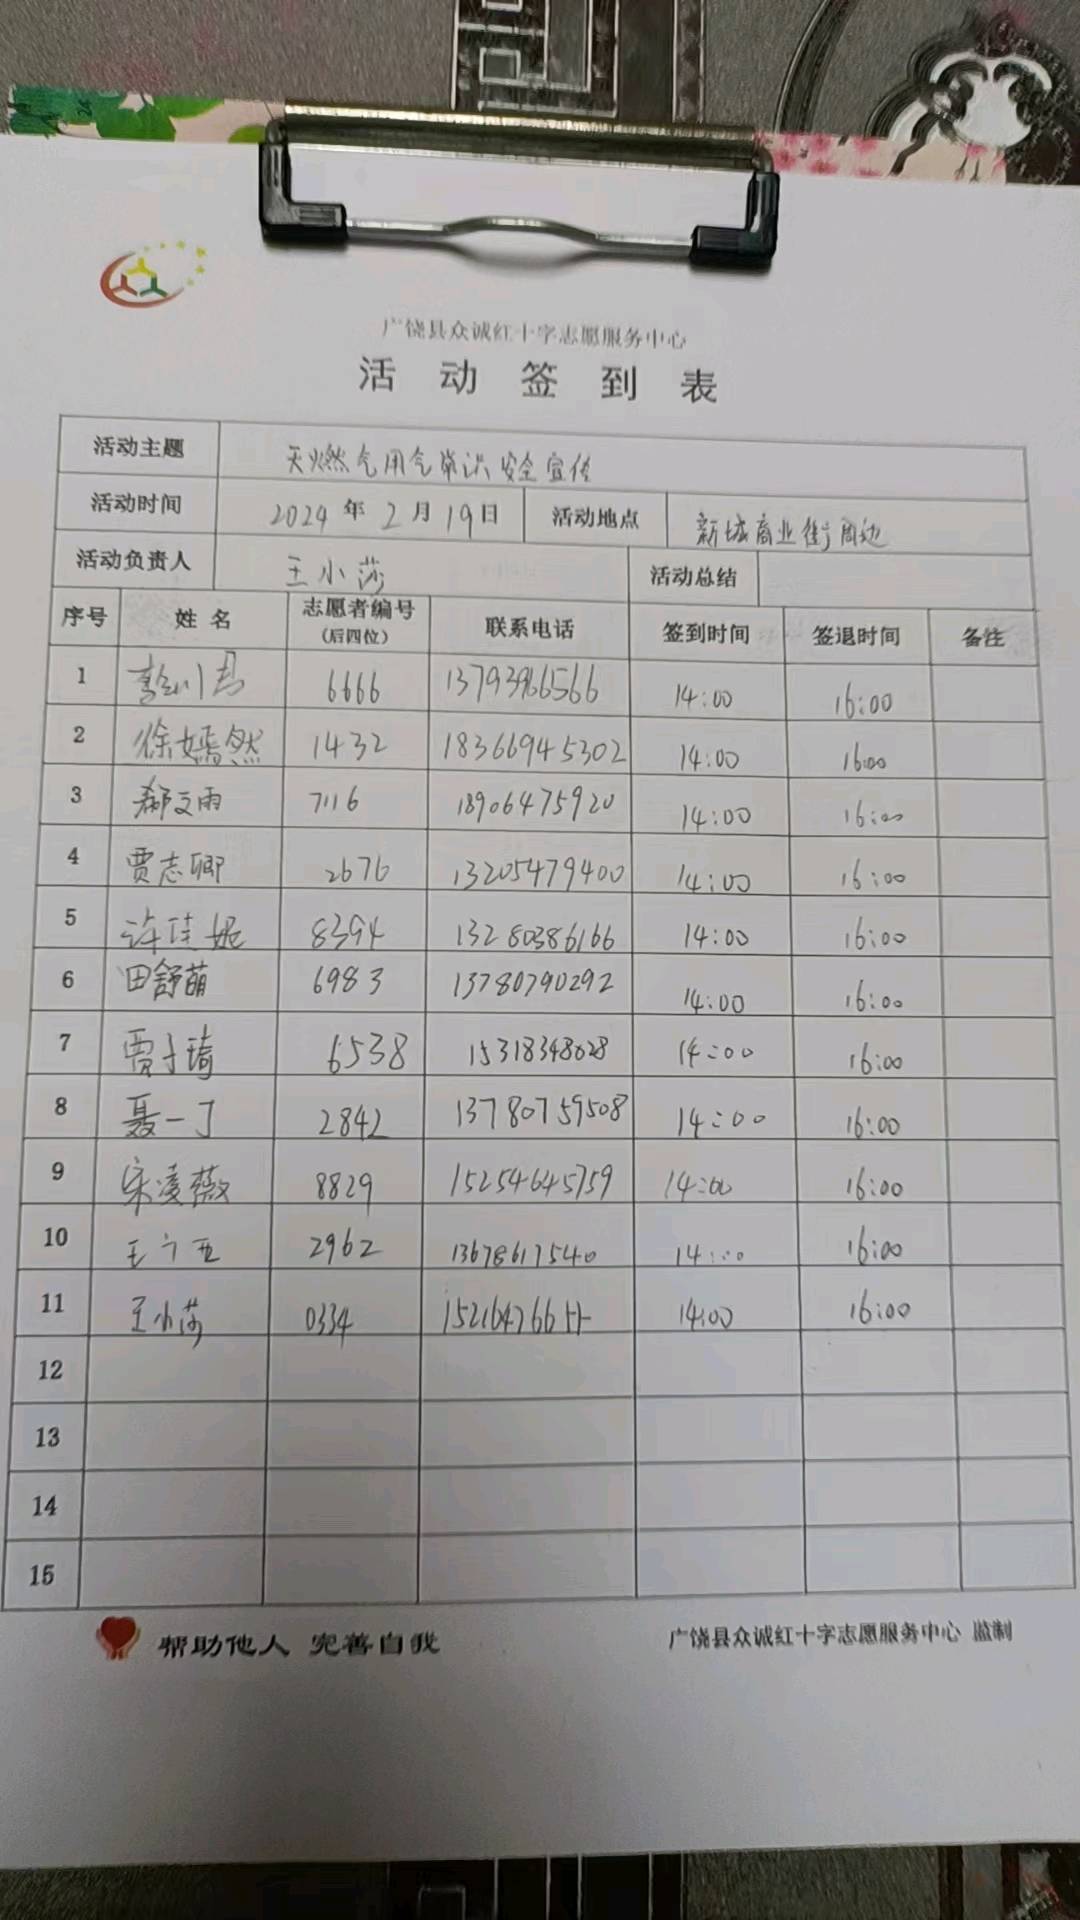 广饶县众诚红十字志愿服务中心
活动签到表
活动主题 天燃气用气常识安全宣传
活动时间 2024年2月19日 活动地点 新城商业街周边
活动负责人 王小莎 活动总结
序号 姓名 志愿者编号(后四位) 联系电话 签到时间 签退时间 备注
1 6666 13793966566 14:00 16:00
2 徐嫣然 1432 18366945302 14:00 16:00
3 郝文雨 7116 18906475920 14:00 16:00
4 贾志卿 2676 13205479400 14:00 16:00
5 许佳妮 8394 13280386166 14:00 16:00
6 田舒萌 6983 13780790292 14:00 16:00
7 贾子琦 6538 15318348028 14:00 16:00
8 聂一丁 2842 13780759508 14:00 16:00
9 宋凌薇 8829 15254645759 14:00 16:00
10 王宁亚 2962 13678617540 14:00 16:00
11 王小莎 0334 14:00 16:00
12
13
14
15
帮助他人 完善自我 广饶县众诚红十字志愿服务中心 监制